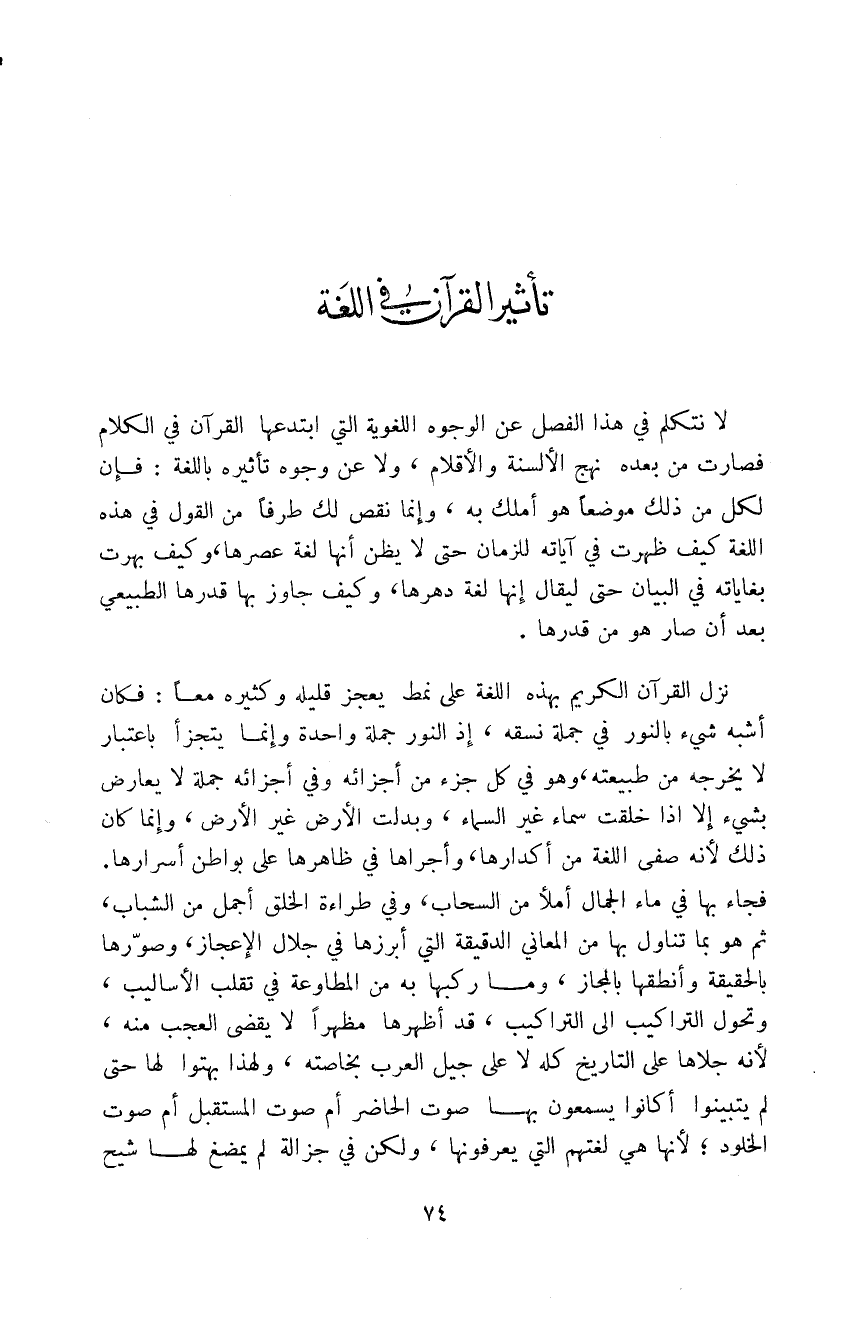 تأثير القرآن في اللغة
لا نتكلم في هذا الفصل عن الوجوه اللغوية التي ابتدعها القرآن في الكلام
فصارت من بعده نهج الألسنة والأقلام ، ولا عن وجوه تأثيره باللغة : فإن
لكل من ذلك موضعاً هو أملك به ، وإنما نقص لك طرفاً من القول في هذه
اللغة كيف ظهرت في آياته للزمان حتى لا يظن أنها لغة عصرها، وكيف بهرت
بغاياته في البيان حتى ليقال إنها لغة دهرها، وكيف جاوز بها قدرها الطبيعي
بعد أن صار هو من قدرها .
نزل القرآن الكريم بهذه اللغة على نمط يعجز قليله وكثيره معاً : فكان
أشبه شيء بالنور في جملة نسقه ، إذ النور جملة واحدة وإنما يتجزأ باعتبار
لا يخرجه من طبيعته، وهو في كل جزء من أجزائه وفي أجزائه جملة لا يعارض
بشيء إلا اذا خلقت سماء غير السماء ، وبدلت الأرض غير الأرض ، وإنما كان
ذلك لأنه صفى اللغة من أكدارها، وأجراها في ظاهرها على بواطن أسرارها.
فجاء بها في ماء الجمال أملأ من السحاب، وفي طراءة الخلق أجمل من الشباب،
ثم هو بما تناول بها من المعاني الدقيقة التي أبرزها في جلال الإعجاز، وصوّرها
بالحقيقة وأنطقها بالمجاز ، وما ركبها به من المطاوعة في تقلب الأساليب ،
وتحول التراكيب الى التراكيب ، قد أظهرها مظهراً لا يقضى العجب منه ،
لأنه جلاها على التاريخ كله لا على جيل العرب بخاصته ، ولهذا بهتوا لها حتى
لم يتبينوا أكانوا يسمعون بها صوت الحاضر أم صوت المستقبل أم صوت
الخلود ؛ لأنها هي لغتهم التي يعرفونها ، ولكن في جزالة لم يمضغ لها شيح
٧٤